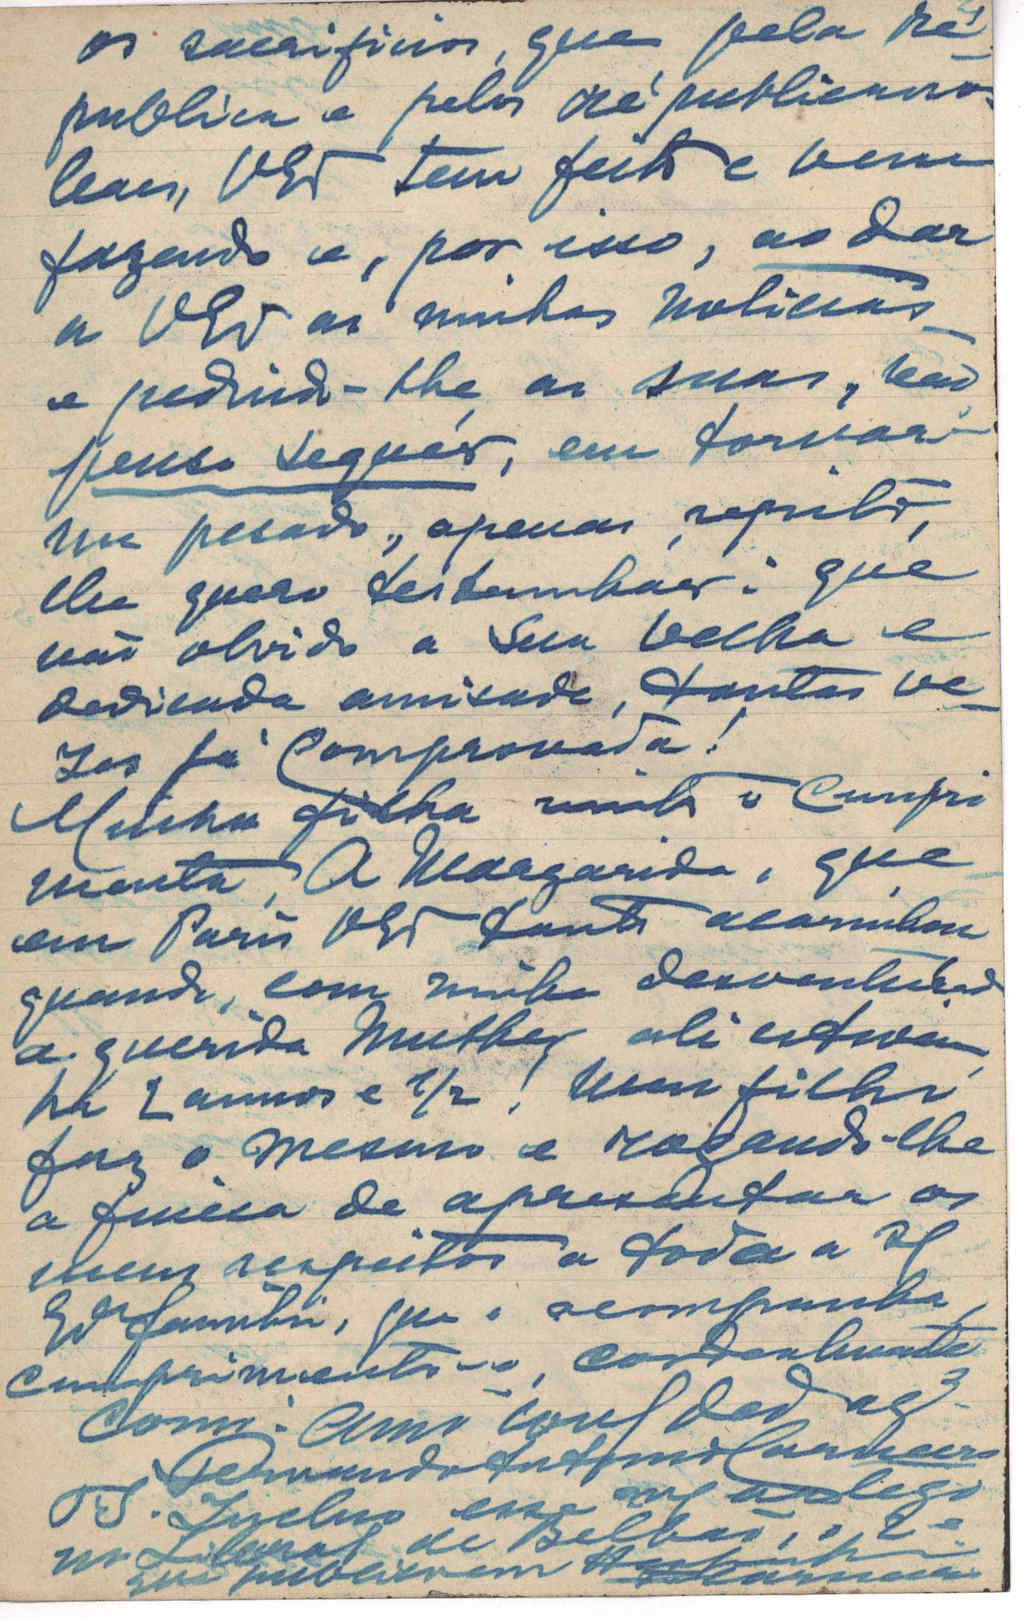 os sacrificios, que pela Ré-
publica e pelos républicanos
leaes, VExª tem feito e vem
fazendo e, por isso, ao dar
a VExª as minhas noticias
e pedindo-lhe as suas, não
penso sequér, em tornar-
me pesado, apenas, repito,
lhe quero testemunhar: que
não olvido a Sua velha e
dedicada amisade, tantas ve-
zes já comprovada!
Minha filha muito o cumpri
menta, A Margarida, que
em Paris VExª tanto acarinhou
quando, com minha desventurad
a querida Mulher ali estivam,
há 2 annos e 1/2! Meu filho
faz o mesmo e rogando-lhe
a fineza de apresentar os
meus respeitos a toda a
Exmª familia, que o acompanha,
cumprimento-o, cordealmente
como: Amº ded
Fernando Antonio Carneiro
P.S. Incluo esse artigo
no Liberal de Bilbao,
que publicaram